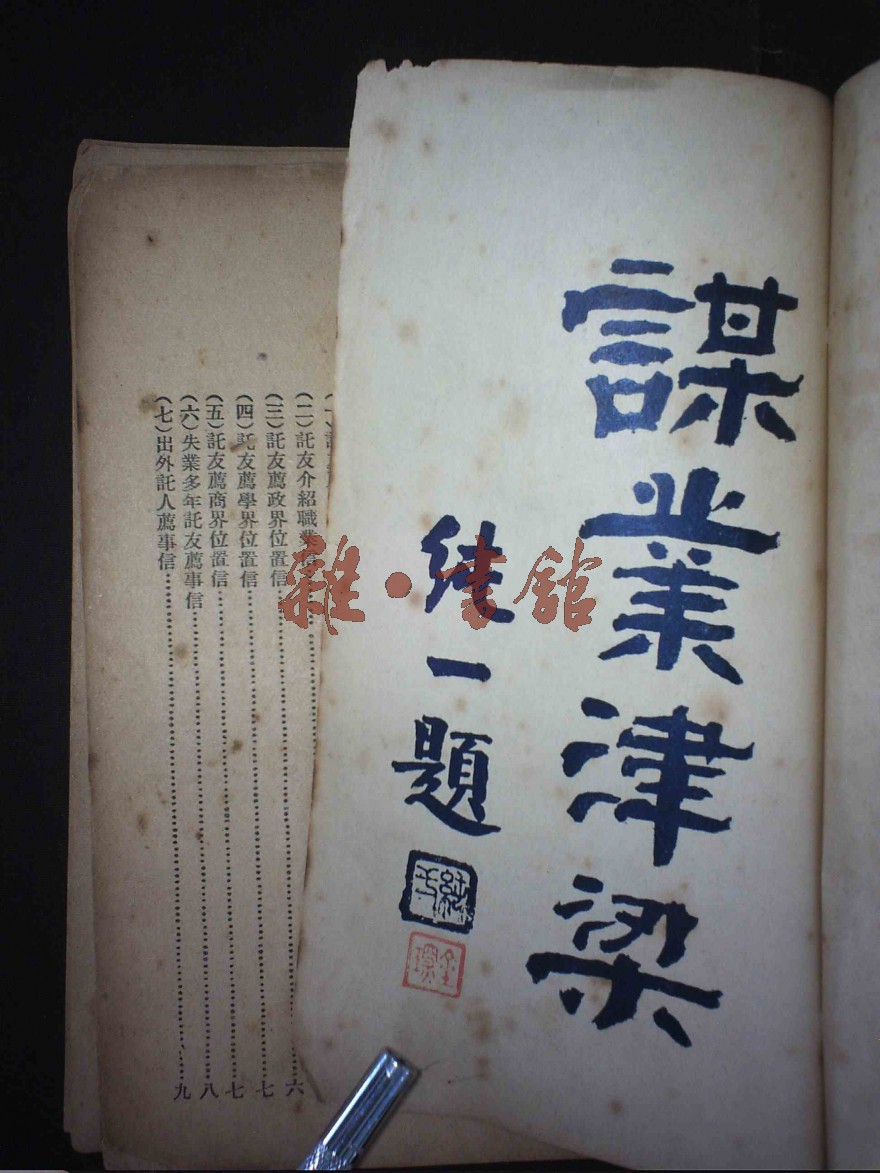 謀業津梁
一題
雜·書館
(二)託友介紹職業信
(三)託友薦政界位置信……六
(四)託友薦學界位置信……七
(五)託友薦商界位置信……七
(六)失業多年託友薦事信……八
(七)出外託人薦事信……九